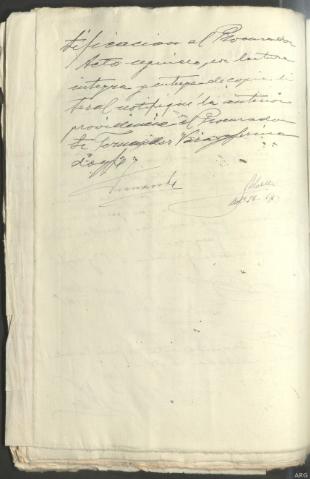 tificacion al Procurador
Acto seguido, por lectura
integra y entrega de copia li
teral notifiqué la anterior
providencia al Procurador
Sr. Fernandez Vicario firma
doy fé
Fernandez
ARG